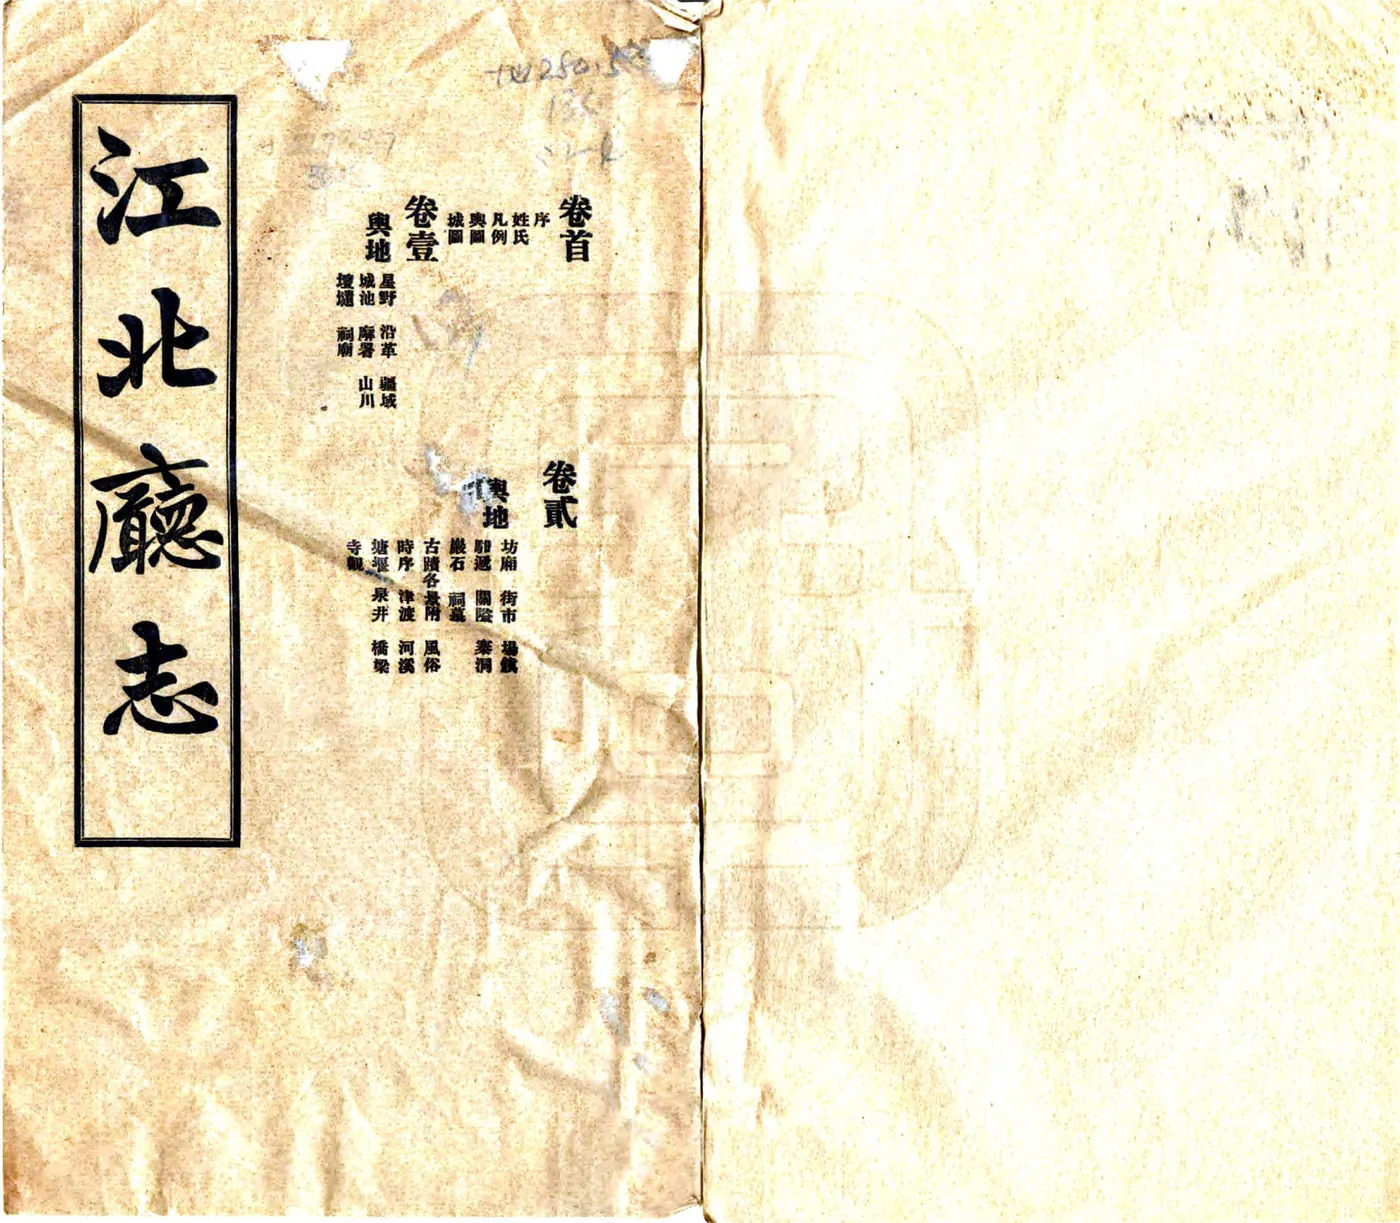 江北廳志
卷首
序
姓氏
凡例
輿圖
城圖
卷壹
輿地
星野 沿革 疆域
城池 廨署 山川
壇壝 祠廟
卷貳
輿地
坊廂 街市 場鎮
馹遞 關隘 寨洞
巖石 祠墓
古蹟各景附 風俗
時序 津渡 河溪
塘堰 泉井 橋梁
寺觀